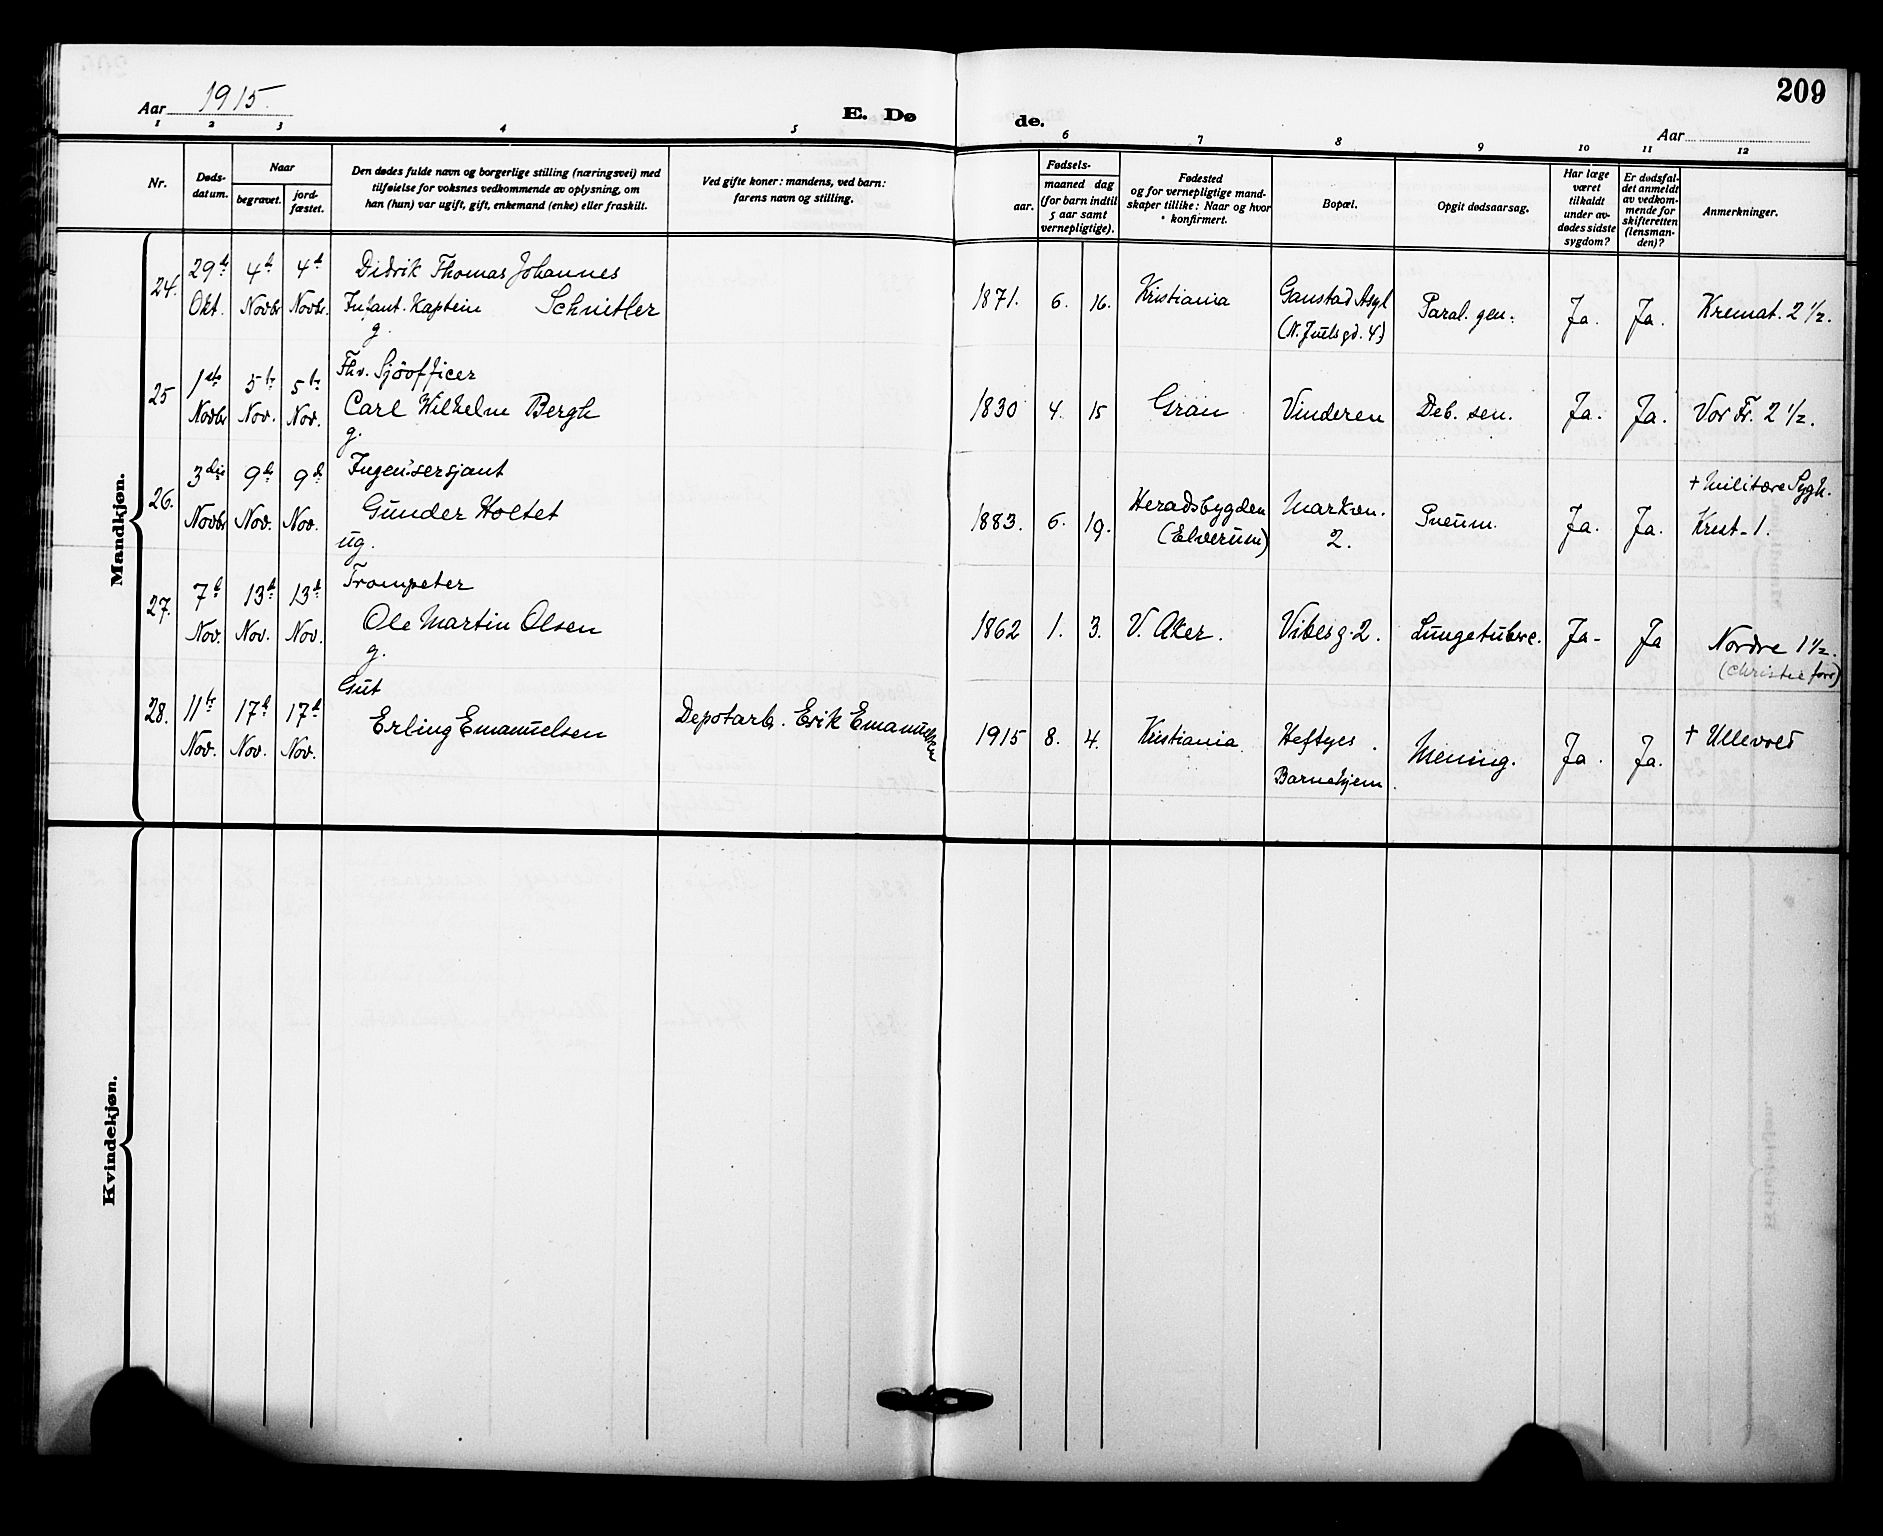 209
Aar 1915.
E. Døde.
Aar
1 2 3 4 5 6 7 8 9 10 11 12
Nr.
Døds-
datum.
Naar
begravet.
jord-
fæstet.
Den dødes fulde navn og borgerlige stilling (næringsvei) med
tilføielse for voksnes vedkommende av oplysning, om
han (hun) var ugift, gift, enkemand (enke) eller fraskilt.
Ved gifte koner: mandens, ved barn:
farens navn og stilling.
Fødsels-
aar.
maaned dag
(for barn indtil
5 aar samt
vernepligtige).
Fødested
og for vernepligtige mand-
skaper tillike: Naar og hvor
konfirmert.
Bopæl.
Opgit dødsaarsag.
Har læge
været
tilkaldt
under av-
dødes sidste
sygdom?
Er dødsfal-
det anmeldt
av vedkom-
mende for
skifteretten
(lensman-
den)?
Anmerkninger.
Mandkjøn.
24. 29de Okt. 4de Novbr 4de Novbr.
Didrik Thomas Johannes
Infant. Kaptein Schnitler
g.
1871. 6. 16. Kristiania
Gaustad Asyl
(N. Juels gd. 4)
Paral. gen. Ja. Ja. Kremat. 2 1/2.
25 1ste Novbr 5te Nov. 5te Nov.
Fhv. Sjöofficer
Carl Wilhelm Bergh
g.
1830 4. 15 Gran Vinderen Deb. sen. Ja. Ja. Vor Fr. 2 1/2.
26. 3die Novbr 9de Nov. 9de Nov.
Ingeniörsersjant
Gunder Holtet
ug.
1883. 6. 19. Heradsbygden
(Elverum)
Markvn.
2.
Pneum. Ja. Ja.
+ Militære Sygh.
Krist. 1.
27. 7de Nov. 13de Nov. 13de Nov.
Trompeter
Ole Martin Olsen
g.
1862 1. 3. V. Aker. Vibesg. 2. Lungetuberc. Ja. Ja
Nordre 1 1/2.
28. 11te Nov. 17de Nov. 17de Nov.
Gut
Erling Emanuelsen
Depotarb. Erik Emanuelsen
1915 8. 4. Kristiania
Heftyes
Barnehjem.
Mening. Ja. Ja. + Ullevold
Kvindekjøn.